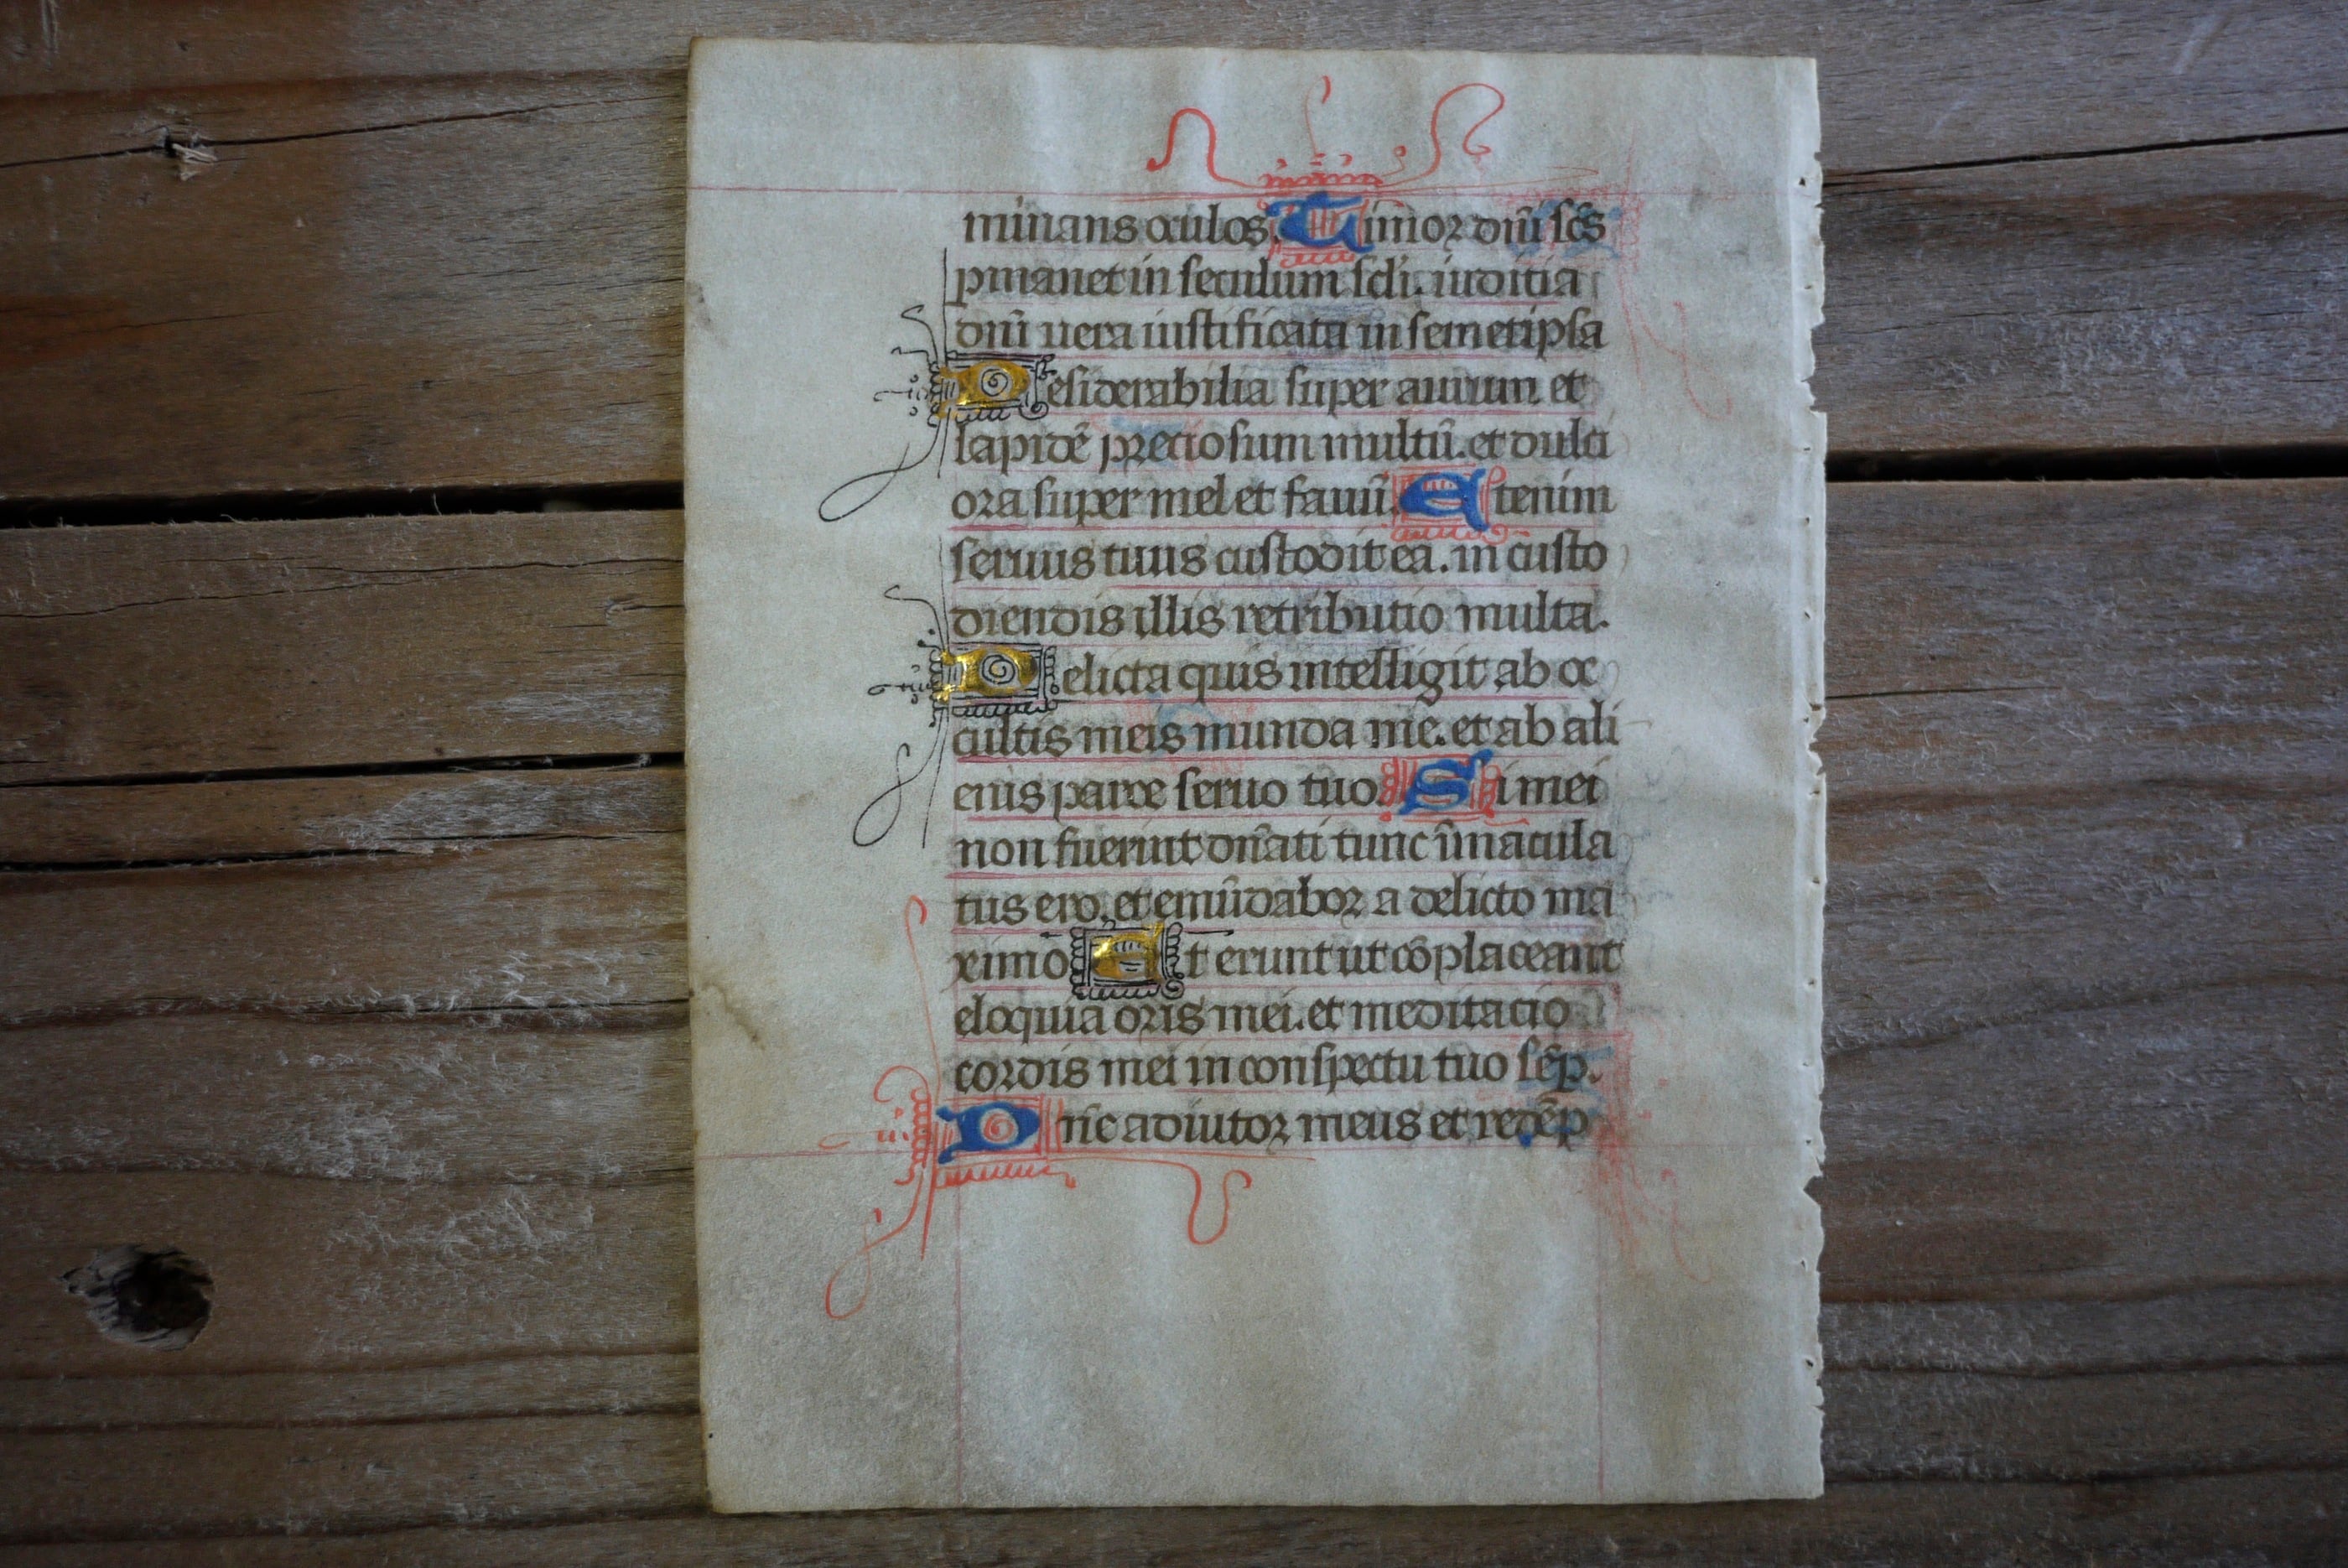 minans oculos. Timor dn̄i sc̄s
pmanet in seculum scl̄i. iuditia
dn̄i uera iustificata in semetipsa
Desiderabilia super aurum et
lapidē preciosum multū. et dulci
ora super mel et fauū. Etenim
seruus tuus custodit ea. in custo
diendis illis retributio multa.
Delicta quis intelligit ab oc
cultis meis munda me. et ab ali
enis parce seruo tuo. Si mei
non fuerint dn̄ati tunc īmacula
tus ero. et emūdabor a delicto ma
ximo Et erunt ut cōplaceant
eloquia oris mei. et meditacio
cordis mei in conspectu tuo sēp.
Dn̄e adiutor meus et redēp